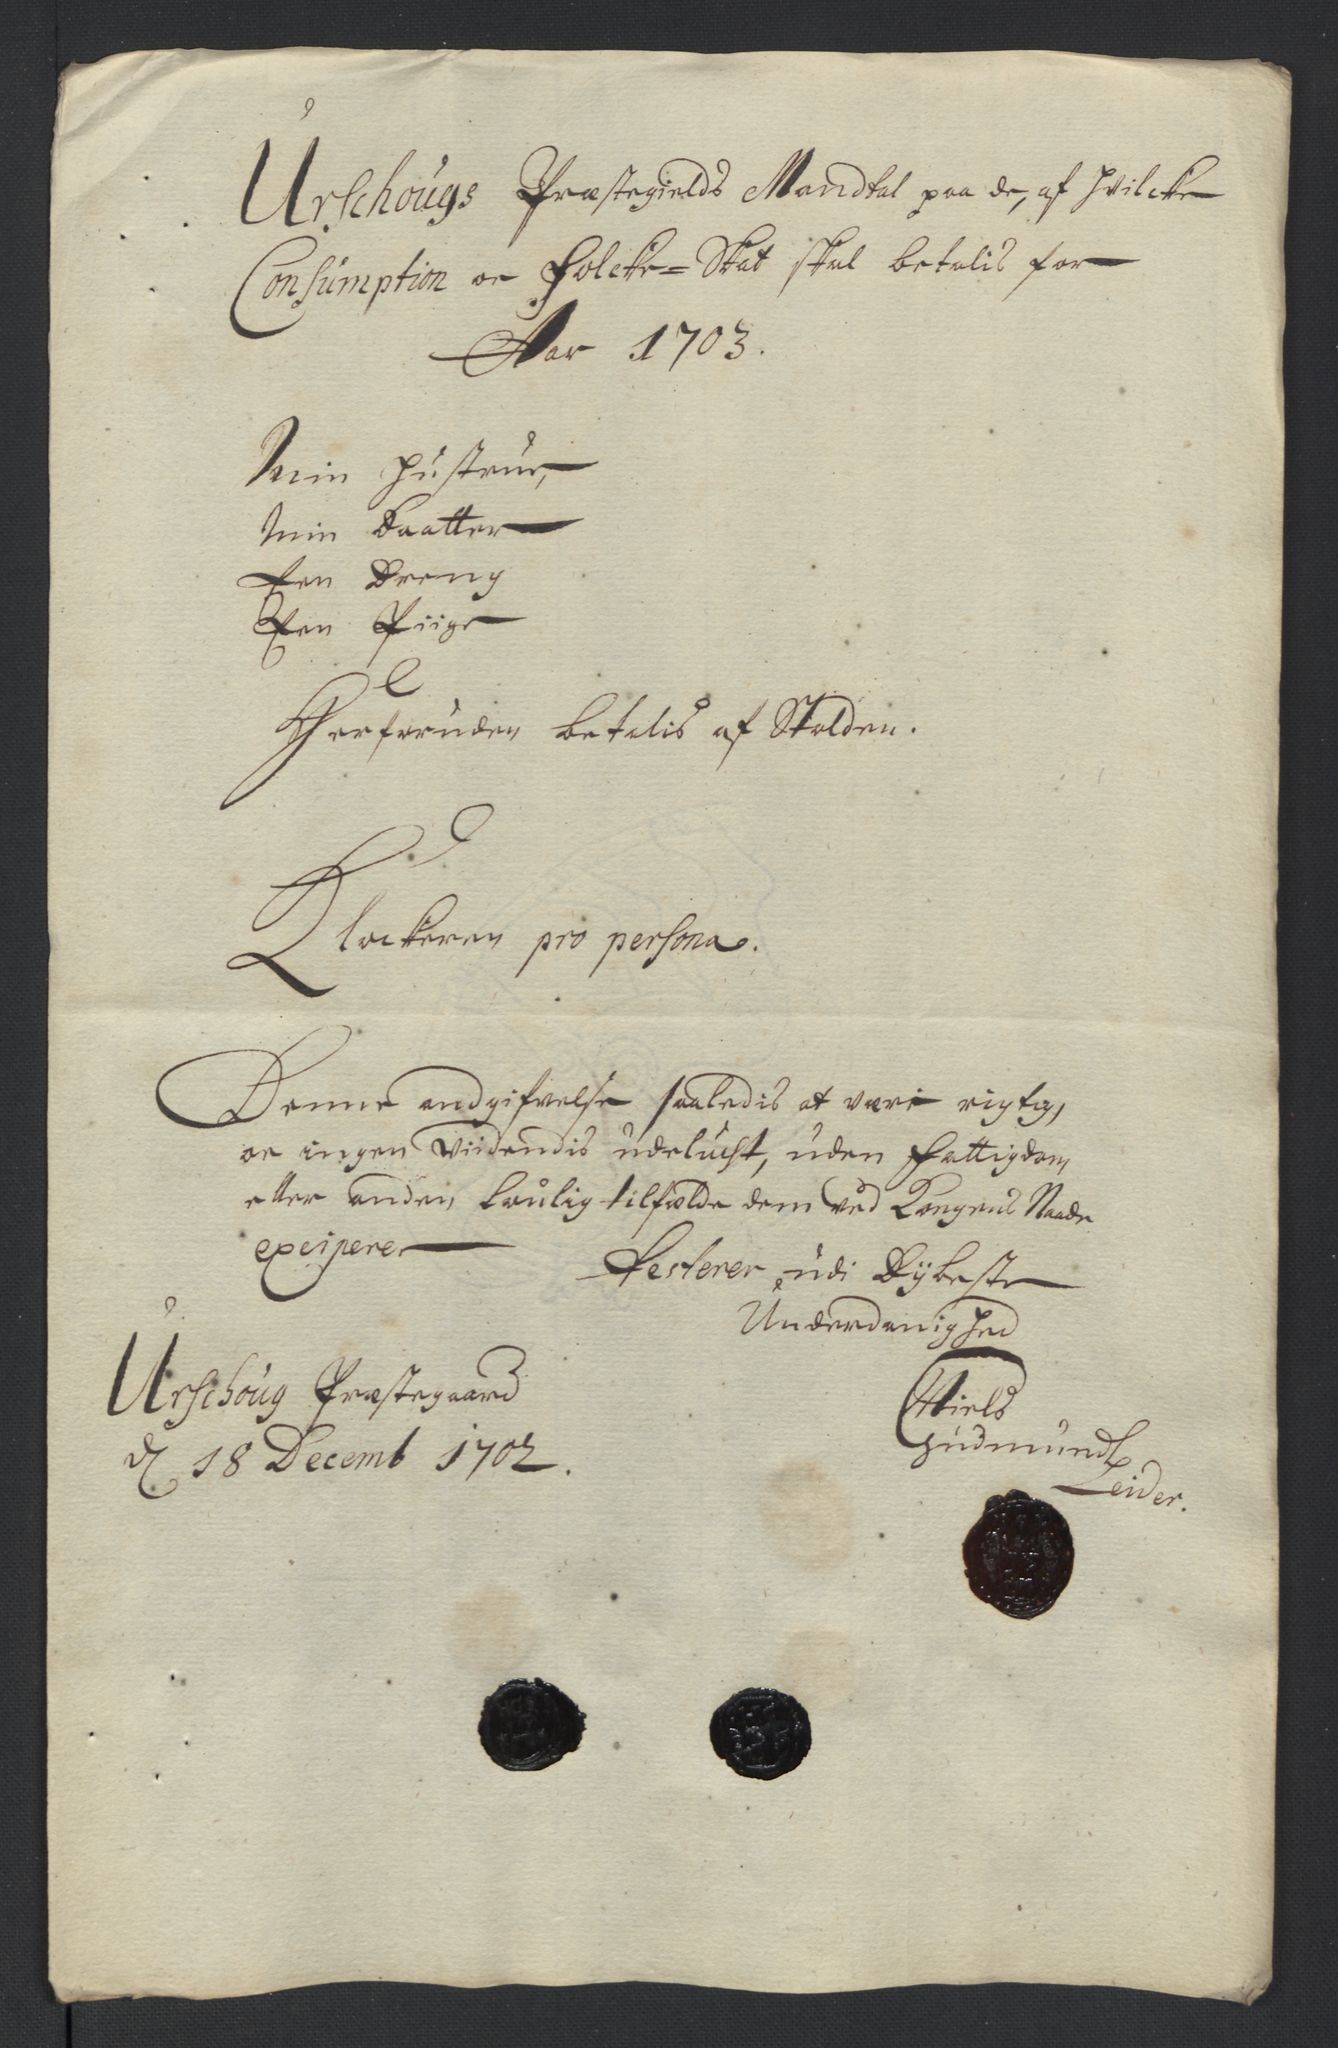 Urschougs Præstegields Mandtal paa de, af hvilcke
Consumption oc Folcke-Skat skal betalis for
Aar 1703.
Min hustrue,
Min Daatter
Een Dreng
Een Piige
Herforuden betalis af Skolden.
Klockeren pro persona.
Denne andgifvelse saaledis at være rigtig,
oc ingen viidendis udelucht, uden Fattigdom
eller anden loulig tilfælde dem ved Kongens Naade
exciperer
Testerer udi Dybeste
Underdanighed
Niels
Gudmunds
Leider.
Urschoug Præstegaard
d 18 Decemb 1702.